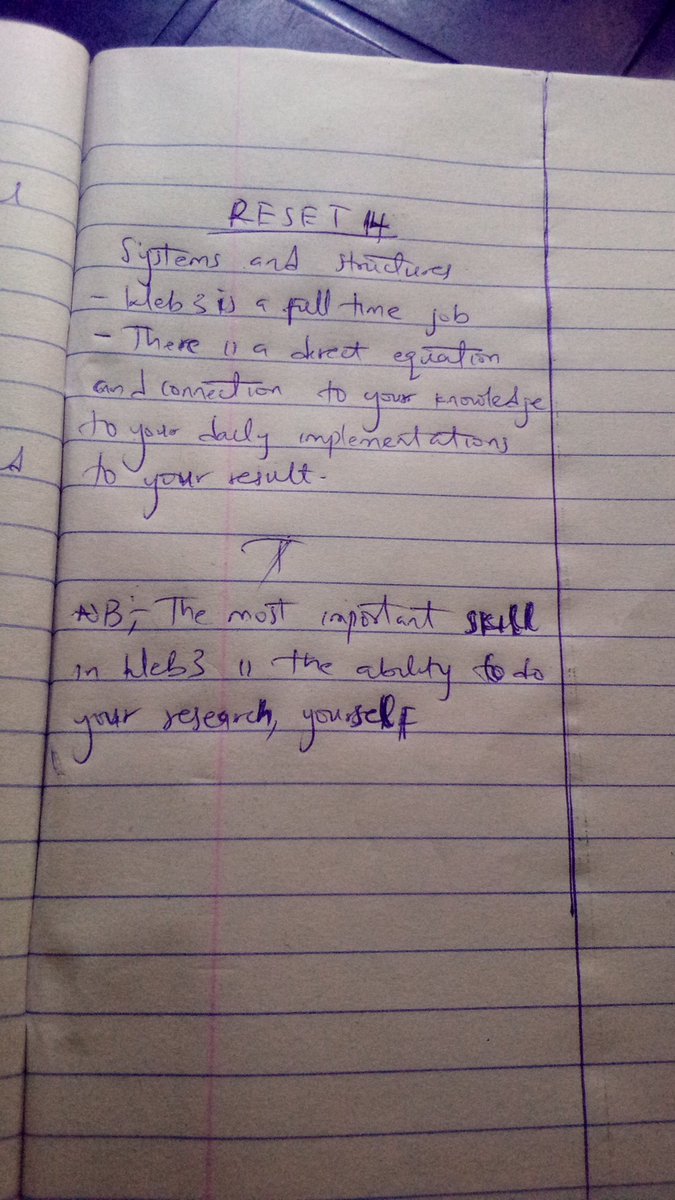 RESET 14
Systems and structures
- Web3 is a full time job
- There is a direct equation
and connection to your knowledge
to your daily implementations
to your result.
NB;- The most important skill
in Web3 is the ability to do
your research, yourself